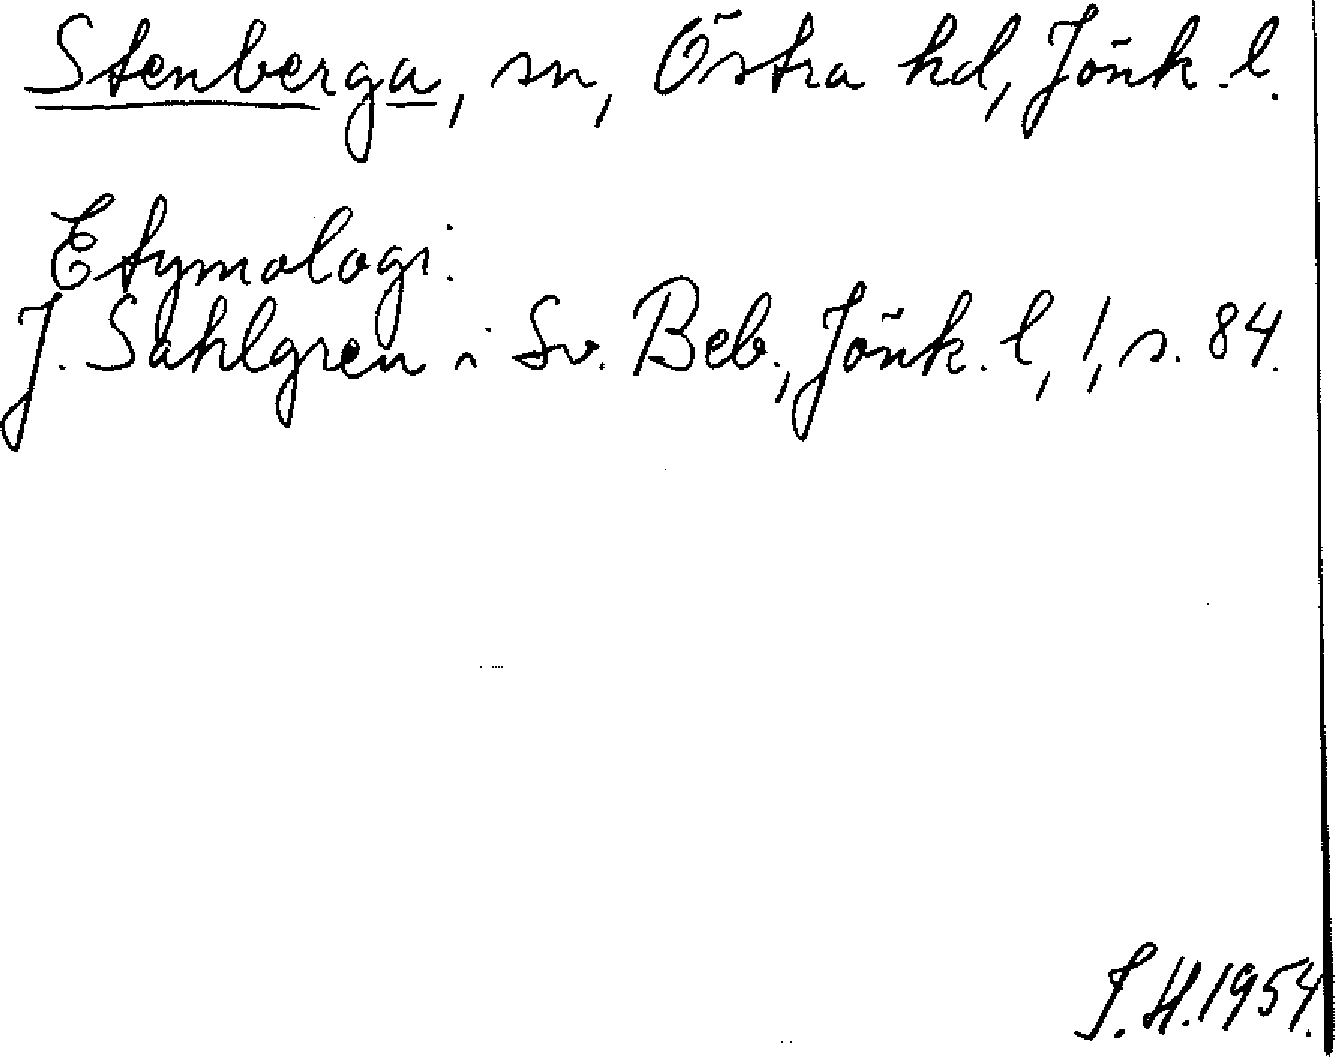 Stenberga, sn, Östra hd, Jönk. l.
Etymologi:
J. Sahlgren i Sv. Beb., Jönk. l, 1, s. 84.
J. H. 1954.